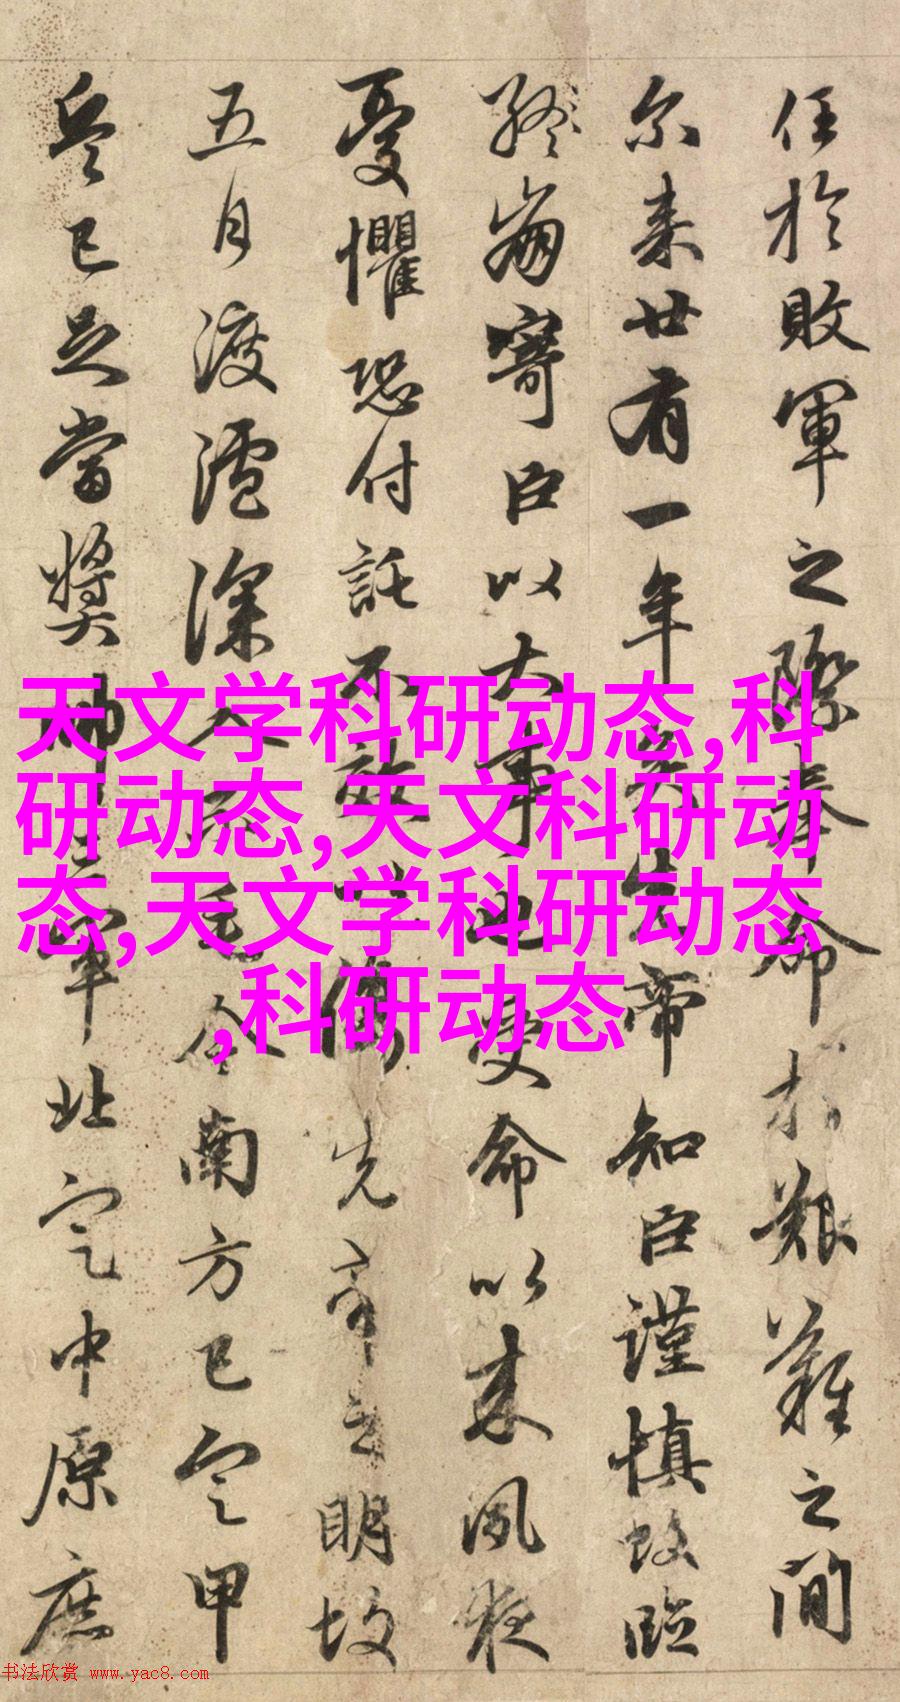 任於敗軍之際奉命於艱難之間
尔来廿有一年矣先帝知臣謹慎故臨
終崩寄臣以大事也受命以来夙夜
憂懼恐付託不效以傷先帝之明故
五月渡瀘深入不毛今南方已定甲
兵已足當獎帥三軍北定中原庶
天文学科研动态,科
研动态,天文科研动
态,天文学科研动态
,科研动态
书法欣赏 www.yac8.com